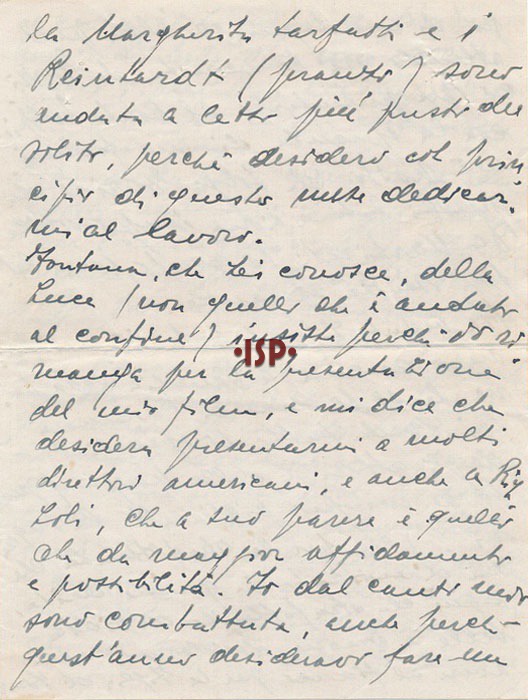 la Margherita Sarfatti e i
Reinhardt (pranzo) sono
andata a letto più presto del
solito, perché desidero col prin
cipio di questo mese dedicar.
mi al lavoro.
Fontana, che Lei conosce, della
Luce (non quello che è andato
al confine) insiste perché io ri
manga per la presentazione
del mio film, e mi dice che
desidera presentarmi a molti
direttori americani, e anche a Riz
zoli, che a suo parere è quello
che da maggior affidamento
e possibilità. Io dal canto mio
sono combattuta, anche perché
quest'anno desideravo fare un
•ISP•